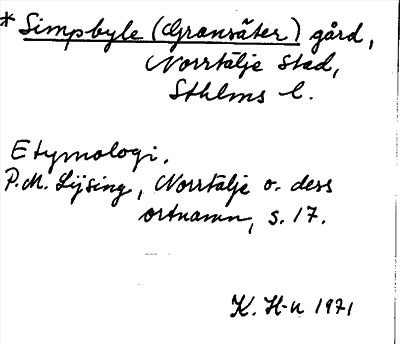 * Simpbyle (Gransäter) gård,
Norrtälje stad,
Sthlms l.
Etymologi.
P.M. Lijsing, Norrtälje o. dess
ortnamn, s. 17.
K. H-n 1971